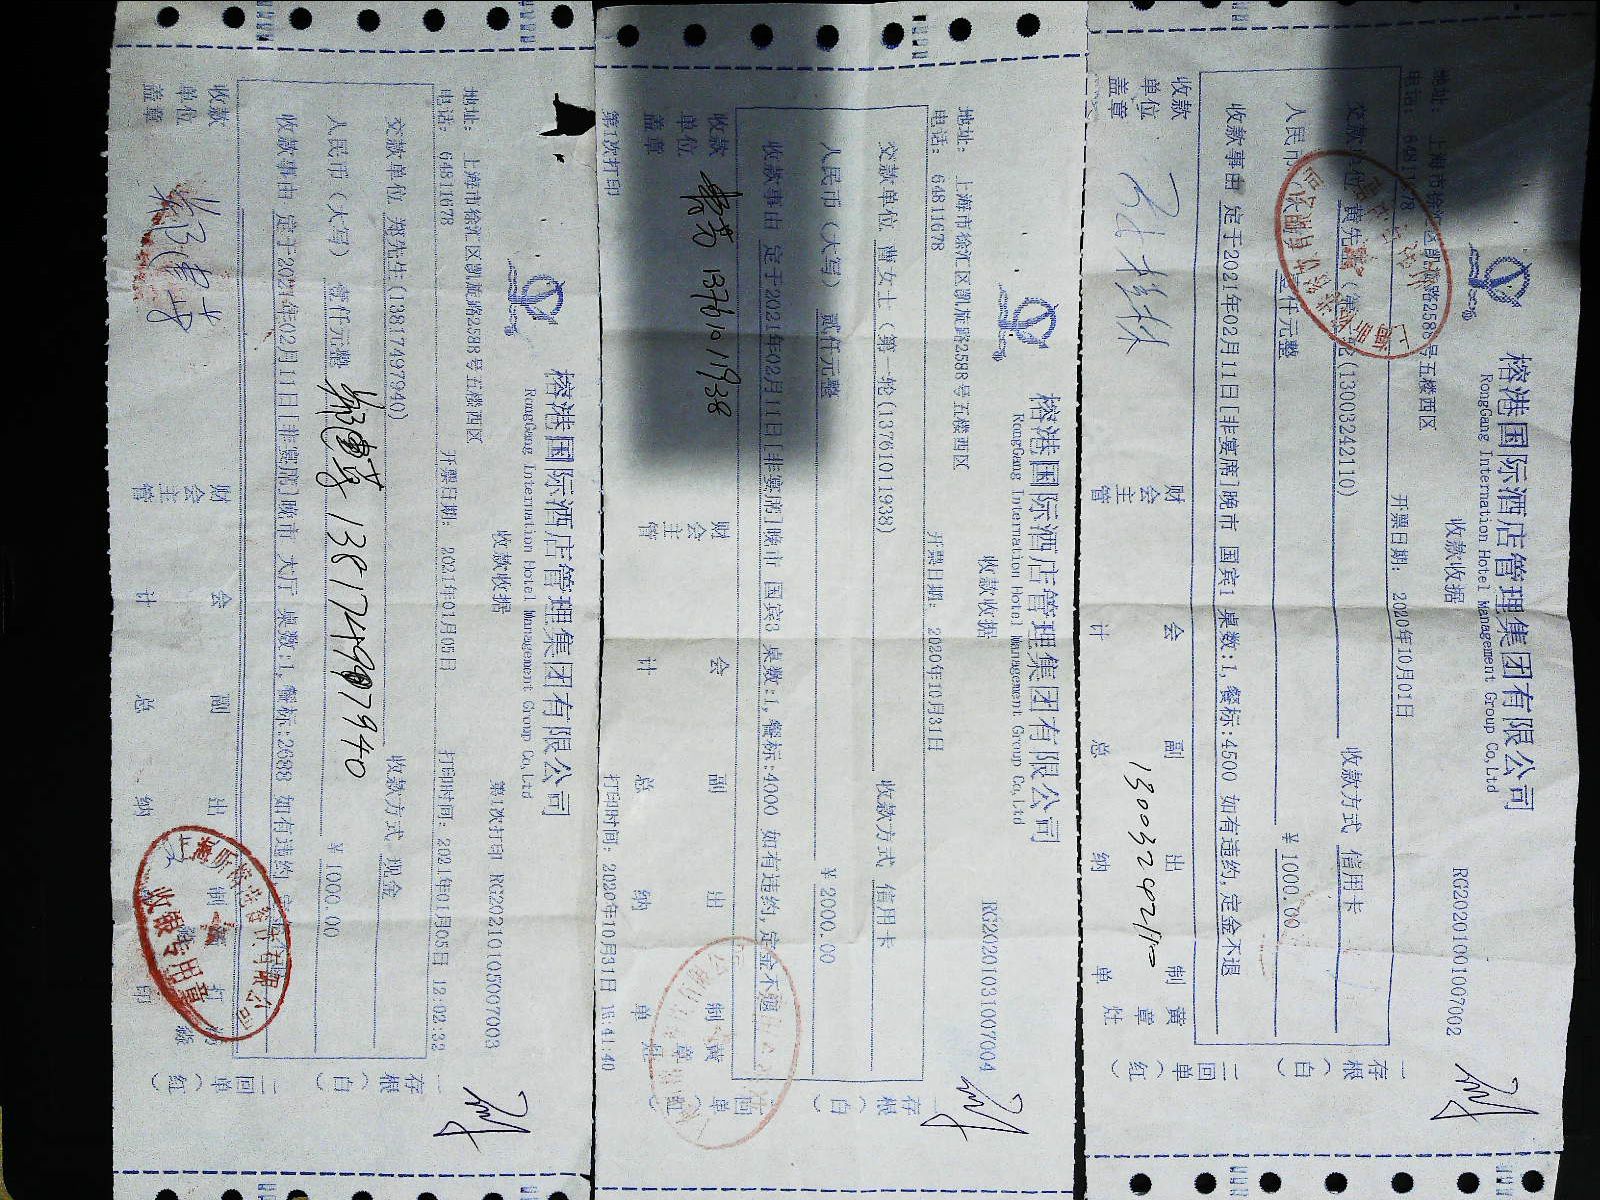 榕港国际酒店管理集团有限公司
RongGang Internation Hotel Management Group Co,Ltd
收款收据
RG20201001007002
地址: 上海市徐汇区凯旋路2588号五楼西区
电话: 64811678
开票日期: 2020年10月01日
交款单位 黄先生(13003242110)
收款方式 信用卡
人民币 壹仟元整
￥1000.00
收款事由 定于2021年02月11日[非宴席]晚市 国宾1 桌数:1,餐标:4500 如有违约,定金不退
收款单位盖章
财会主管
会计
副总
出纳
制单
黄章灶
13003242110
一存根(白)
二回单(红)
榕港国际酒店管理集团有限公司
RongGang Internation Hotel Management Group Co,Ltd
收款收据
RG20201031007004
地址: 上海市徐汇区凯旋路2588号五楼西区
电话: 64811678
开票日期: 2020年10月31日
交款单位 曹女士(第一轮(13761011938)
收款方式 信用卡
人民币(大写) 贰仟元整
￥2000.00
收款事由 定于2021年02月11日[非宴席]晚市 国宾3 桌数:1,餐标:4000 如有违约,定金不退
收款单位盖章
13761011938
财会主管
会计
副总
出纳
制单
黄章灶
第1次打印
打印时间: 2020年10月31日 16:41:40
一存根(白)
二回单(红)
榕港国际酒店管理集团有限公司
RongGang Internation Hotel Management Group Co,Ltd
收款收据
第1次打印 RG20210105007003
地址: 上海市徐汇区凯旋路2588号五楼西区
电话: 64811678
开票日期: 2021年01月05日
打印时间: 2021年01月05日 12:02:32
交款单位 郑先生(13817497940)
收款方式 现金
人民币(大写) 壹仟元整
13817497940
￥1000.00
收款事由 定于2021年02月11日[非宴席]晚市 大厅 桌数:1,餐标:2688 如有违约,定
收款单位盖章
财会主管
会计
副总
出纳
制
打印
发票专用章
一存根(白)
二回单(红)